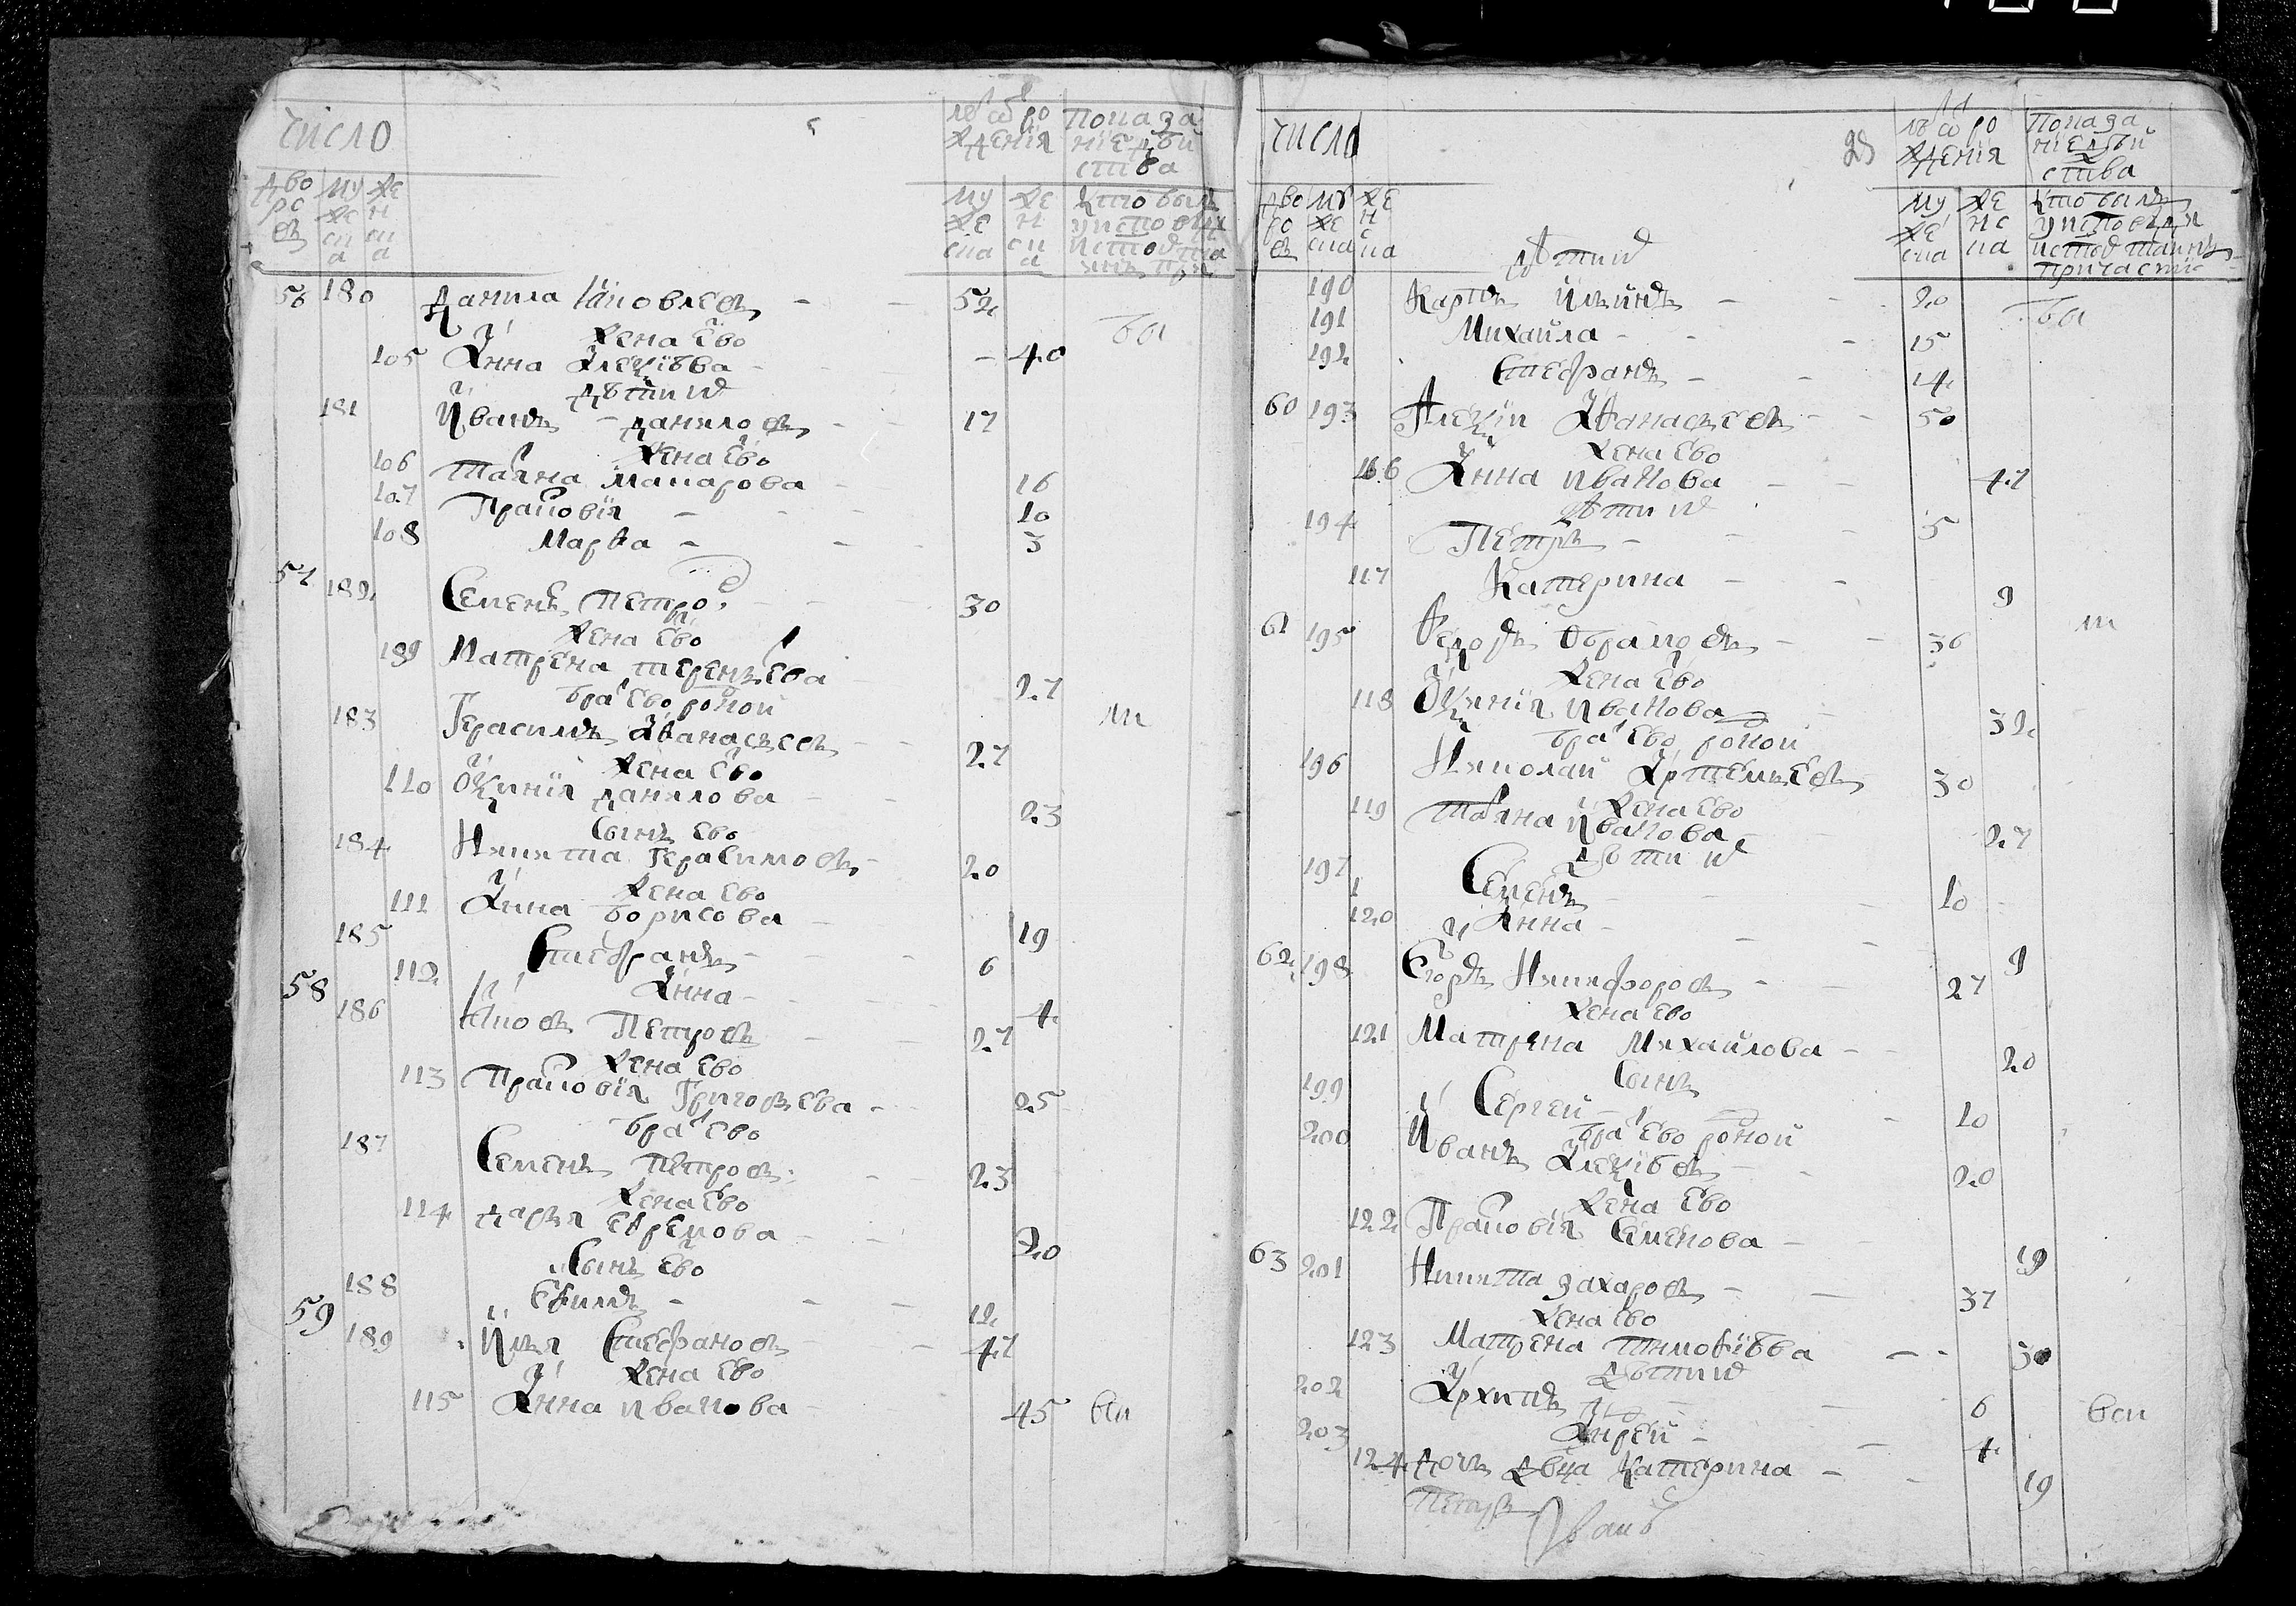 число
лѣ ѿ ро
ждения
показа
ніе дѣй
ства
дво
ро
въ
му
же
ск
а
же
н
ск
а
му
же
ска
же
н
ск
а
кто былъ
у исповѣди
56 180 Данила Іаковлевъ - - 52
жена ево
бы
105 Анна Алеѯѣева - - 40
дѣти их
181 Иванъ - Даниловъ - - 17
жена ево
106 Татьяна Макарова - 16
107 Прасковія - - - 10
108 Марѳа - - - 3
57 182 Семенъ Петро - - 30
жена ево
189 Матрена Терентьева - 27
бра ево родной
183 Герасимъ Аѳанасьевъ - - 27
ш
жена ево
110 Оѯинія Данилова - - 23
сынъ ево
184 Никита Герасимовъ - 20
жена ево
111 Анна Борисова - 19
185 Стефанъ - - - 6
112 Анна - - 4
58 186 Іаковъ Петровъ - - 27
жена ево
113 Прасковія Григорьева - - 25
бра ево
187 Семенъ Петровъ - - 23
жена ево
114 Дарья Ефремова - - 20
сынъ ево
188 Еѳимъ - - - 12
59 189 Илья Стефановъ - 47
жена ево
115 Анна Иванова - 45 вси
число
23
лѣ ѿ ро
ждения
показа
ніе дѣй
ства
дво
ро
въ
му
же
ска
же
н
с
ка
му
же
ска
же
нс
ка
кто былъ
у исповѣди
и с тѣх таинъ
причастия
Дѣти их
190 Карпъ Ильинъ - - 20
бы
191 Михайла - - - 15
192 Стефанъ - - 14
60 193 Алеѯѣи Аѳанасьевъ - - 50
жена ево
116 Анна Иванова - - 47
дѣти их
194 Петръ - - - 5
117 Катерина - - 9
61 195 Ѳедоръ Обрамовъ - - 36
ш
жена ево
118 Оѯинія Иванова - 32
бра ево родной
196 Николай Артемьевъ 30
жена ево
119 Татьяна Иванова - 27
Дѣти их
197 Семенъ - - - 10
120 Анна - - - 9
62 198 Егоръ Никифоровъ - - 27
жена ево
121 Матрена Михайлова - - 20
сынъ
199 Сергей - - 10
бра ево родной
200 Иванъ Алеѯѣевъ - - 20
жена ево
122 Прасковія Семенова - - 19
63 201 Никита Захаровъ - - 37
жена ево
123 Матрена Тимоѳѣева - - 30
Дѣти их
202 Архипъ - - 6
вси
203 Андрей - - 4
124 дочь двца Катерина - - 19
Петръ
Иванъ